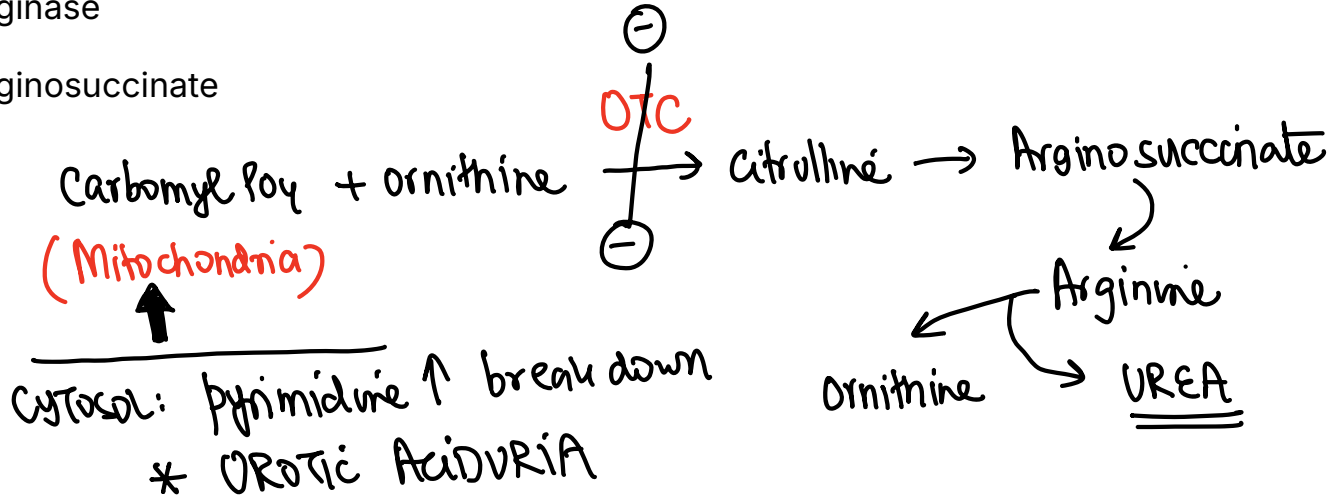 ginase
ginosuccinate
⊖
OTC
Carbomyl Po4 + ornithine → Citrulline → Arginosuccinate
⊖
(Mitochondria)
Arginine
CYTOSOL: pyrimidine ↑ break down
Ornithine
UREA
* OROTIC ACIDURIA